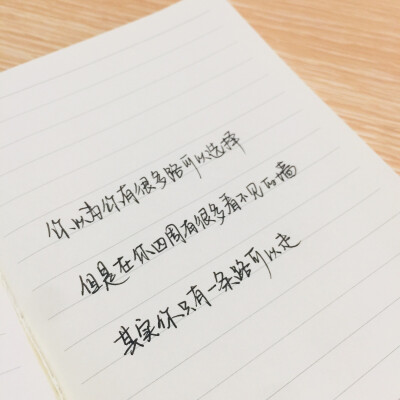 你以为你有很多路可以选择
但是在你四周有很多看不见的墙
其实你只有一条路可以走